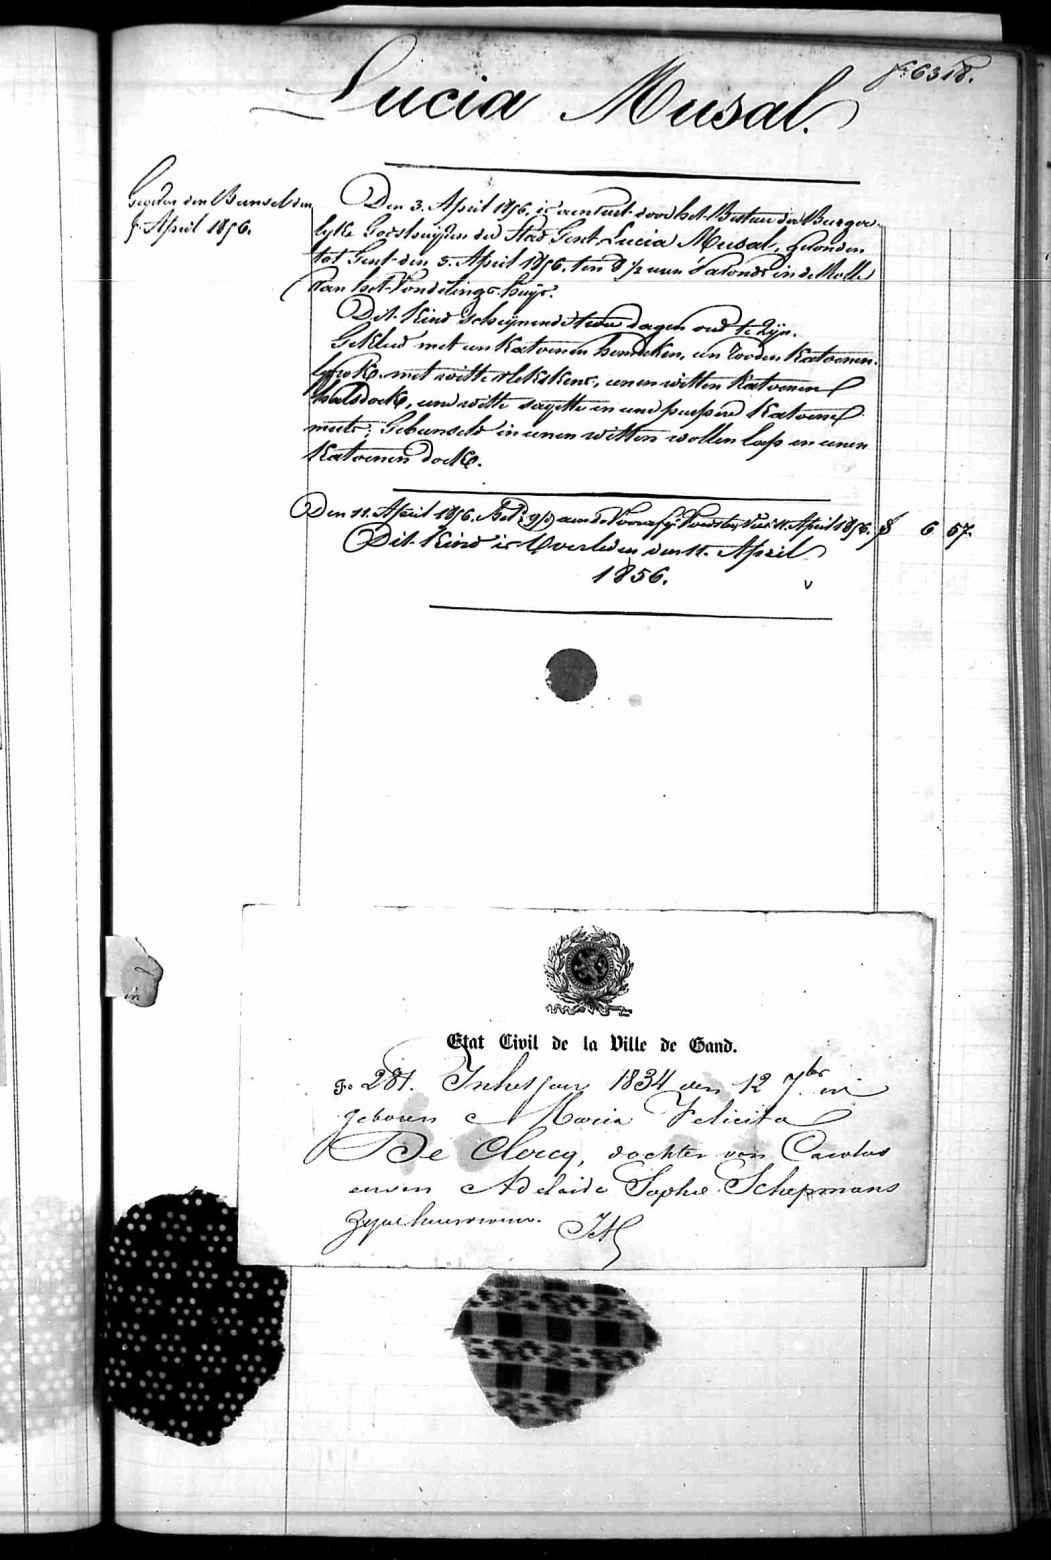 fo 6318.
Lucia Musal.
Gegeven den Bunsel den
5 April 1856.
Den 3. April 1856, is aenveert door het Bestuer der Burger-
lyke Godshuyzen der Stad Gent, Lucia Musal, gevonden
tot Gent den 3. April 1856, ten 8 1/2 uren 's avonds in de Rolle
van het Vondelings-huys.
Dit Kind scheynende twee dagen oud te zyn.
Gekleed met een katoenen hemdeken, een rooden katoenen
met witte plekskens, eenen witten katoenen
halsdoek, eene witte sayette en eene purpere katoene
muts; Gebunseld in eenen witten wollen lap en eenen
katoenen doek.
Den 11. April 1856, Bet: aen de Voedster 11. April 1856. f 6 67.
Dit Kind is Overleden den 11. April
1856.
v
Etat Civil de la Ville de Gand.
Fo 281. In het jaer 1834 den 12 7bre is
geboren Maria Felicita
De Clercq, dochter van Carolus
en van Adelaide Sophie Schepmans
zyne huysvrouw.